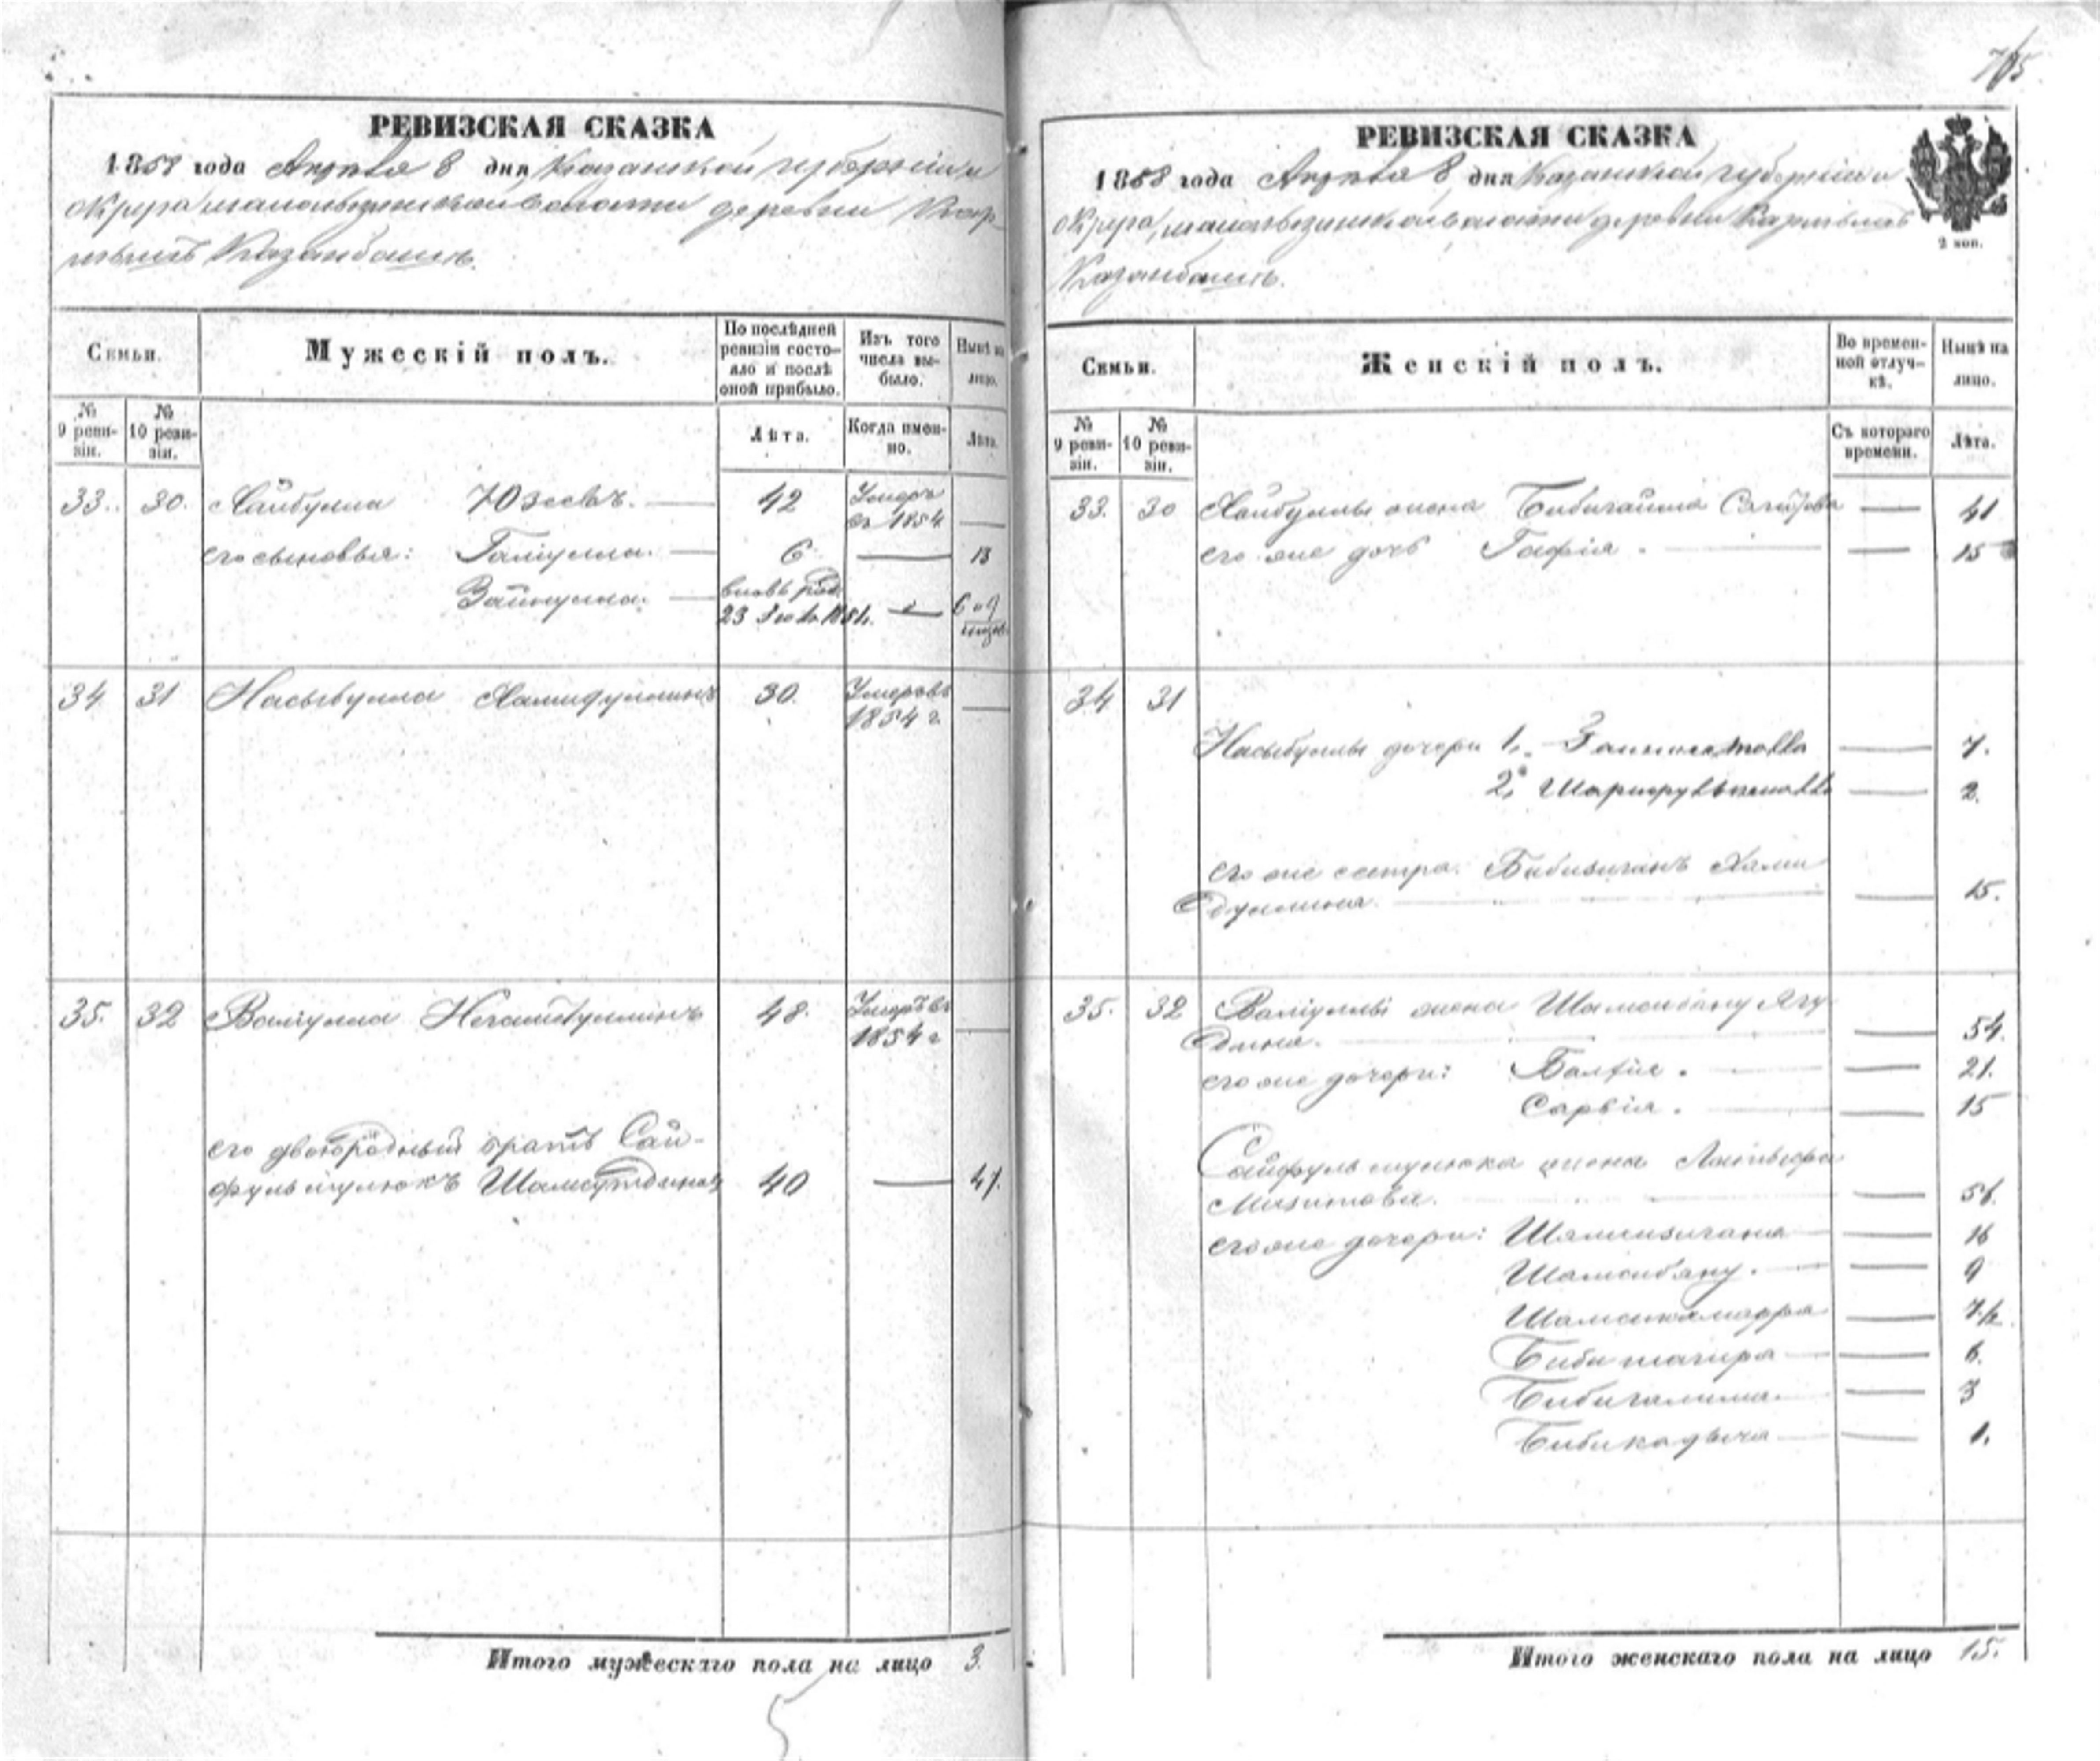 705
РЕВИЗСКАЯ СКАЗКА
1858 года Апреля 8 дня Казанской губерніи и
округа волости деревни Кар
Казанбашъ.
Семьи.
Мужескій полъ.
По послѣдней ревизіи состояло и послѣ оной прибыло.
Изъ того числа выбыло.
Нынѣ на лицо.
№ 9 ревизіи.
№ 10 ревизіи.
Лѣта.
Когда именно.
Лѣта.
33. 30. Хайбулла Юзеевъ. 42 Умеръ въ 1854
его сыновья: Галіулла. 6 13
Зайнулла. вновь род. 23 1851. 6 и 9
34 31 Насыбулла Хамидуллинъ 30. Умеръ въ 1854 г.
35. 32 Валіулла Негаметуллинъ 48. Умеръ въ 1854 г
его двоюродный братъ Сай-
фульмулюкъ Шамсутдиновъ 40 47.
Итого мужескаго пола на лицо 3.
РЕВИЗСКАЯ СКАЗКА
1858 года Апреля 8 дня Казанской губерніи и
округа, волости деревни
Казанбашъ.
2 коп.
Семьи.
Женскій полъ.
Во временной отлучкѣ.
Нынѣ на лицо.
№ 9 ревизіи.
№ 10 ревизіи.
Съ котораго времени.
Лѣта.
33. 30 Хайбуллы жена Бибигайша 41
его же дочь Гафія. 15
34 31
Насыбуллы дочери 1, 7.
2, 2.
его же сестра. Бибизиганъ Хами
дуллина. 15.
35. 32 Валіуллы жена Шамсибану Ягу
дина. 54.
его же дочери: 21.
Сарвія. 15
Сайфульмулюка жена
56.
его же дочери: Шамсизигана 16
Шамсибану. 9
Шамсикамаря 7½
Биби тагира 6.
Бибигалима. 3
Бибикадыча 1.
Итого женскаго пола на лицо 15.